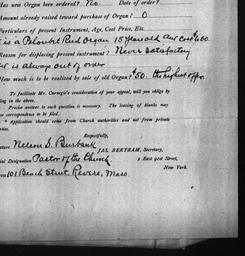 Has new Organ been ordered? No Date of order?
Amount already raised toward purchase of Organ? 0
Particulars of present Instrument, Age, Cost Price, Etc.
It is a Peloubet Reed Organ 15 years old
Reason for displacing present instrument? Never satisfactory
is always out of order
How much is to be realized by sale of old Organ? $50. the highest offer.
To facilitate Mr. Carnegie's consideration of your appeal, will you oblige by
ing in the above.
Precise answer to each question is necessary. The leaving of blanks may
correspondence to be filed.
Application should come from Church authorities and not from private
Respectfully,
Nelson D. Burbank
JAS. BERTRAM, Secretary,
Designation Pastor of the Church
2 East 91st Street,
New York.
101 Beach Street, Revere, Mass.